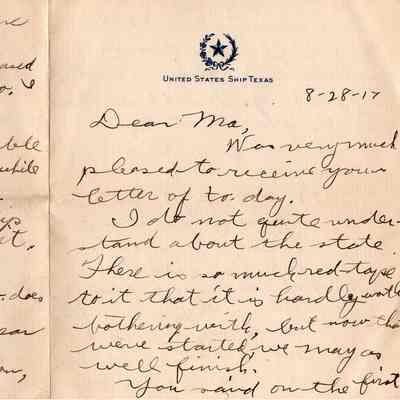 me
ased
o. I
ble
while
ps
et.
. does
ear
on,
UNITED STATES SHIP TEXAS
8-28-17
Dear Ma,
Was very much
pleased to receive your
letter of to-day.
I do not quite under-
stand about the state.
There is so much red-tape
to it that it is hardly worth
bothering with, but now that
were started, we may as
well finish.
You said on the first